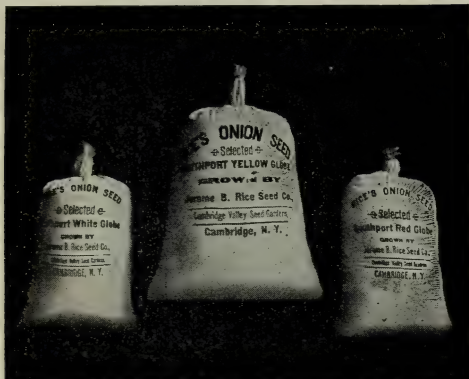 'S ONION SEED
Selected
port White Globe
GROWN BY
Jerome B. Rice Seed Co.,
Cambridge Valley Seed Gardens,
CAMBRIDGE, N. Y.
'S ONION SEED
Selected
THPORT YELLOW GLOBE
GROWN BY
Jerome B. Rice Seed Co.,
Cambridge Valley Seed Gardens,
Cambridge, N. Y.
RICE'S ONION SEED
Selected
Southport Red Globe
GROWN BY
Jerome B. Rice Seed Co.,
Cambridge Valley Seed Gardens
CAMBRIDGE, N. Y.